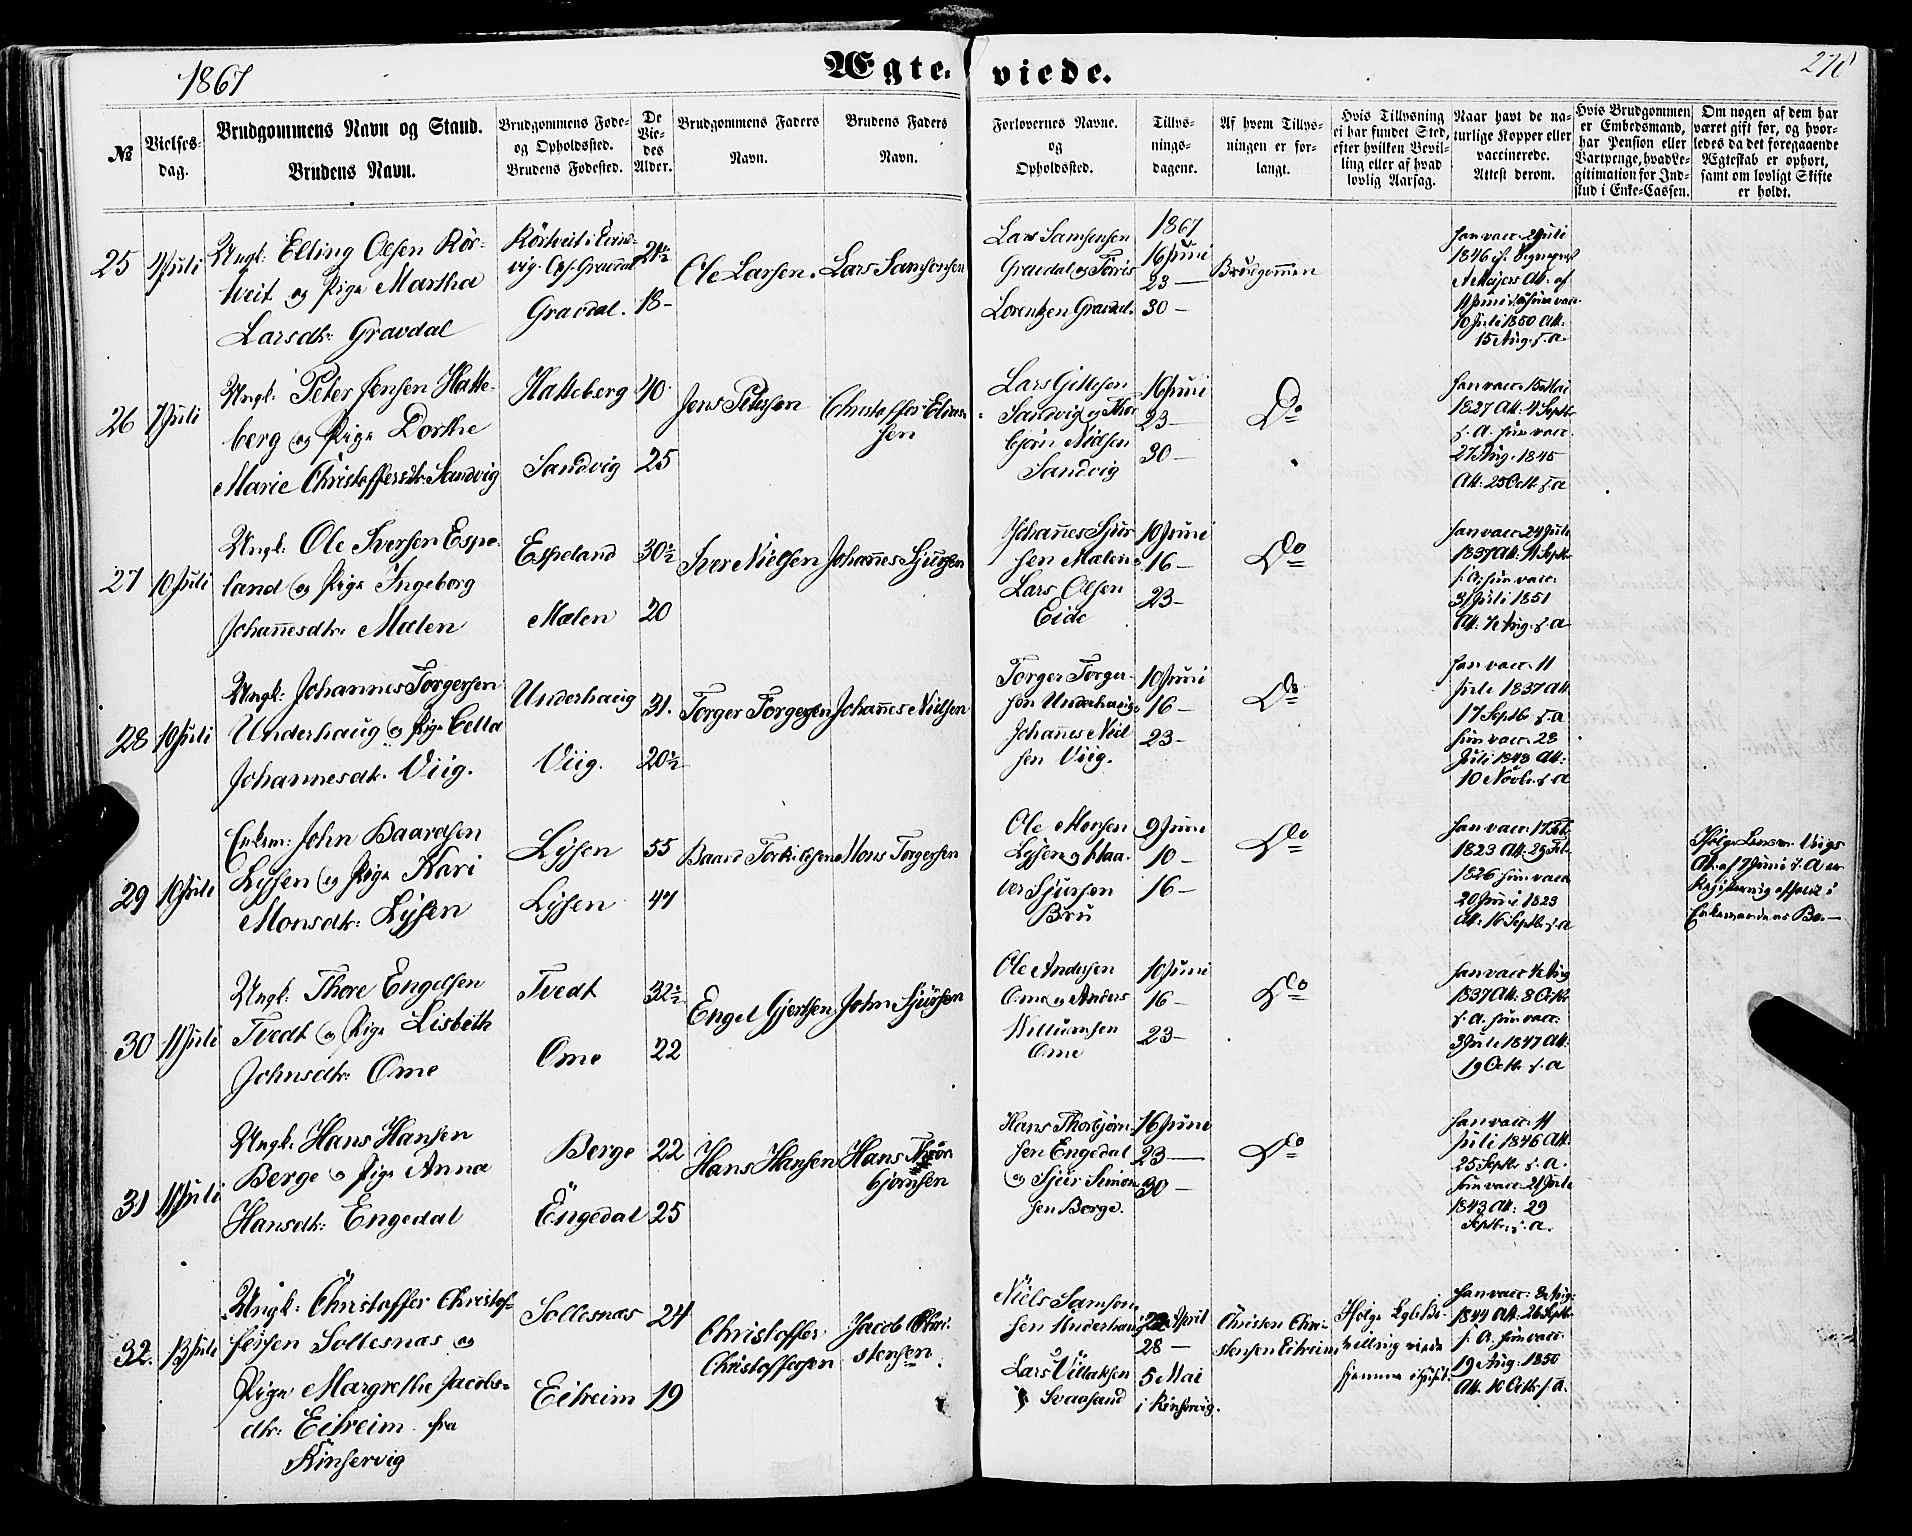 1867
Ægte- viede.
270
№
Vielses-
dag.
Brudgommens Navn og Stand.
Brudens Navn.
Brudgommens Føde-
og Opholdssted.
Brudens Fødested.
De
Vie-
des
Alder.
Brudgommens Faders
Navn.
Brudens Faders
Navn.
Forlovernes Navne.
og
Opholdssted.
Tillys-
nings-
dagene.
Af hvem Tillys-
ningen er for-
langt.
Hvis Tillysning
ei har fundet Sted,
efter hvilken Bevil-
ling eller af hvad
lovlig Aarsag.
Naar havt de na-
turlige Kopper eller
vaccinerede.
Attest derom.
Hvis Brudgommen
er Embedsmand,
har Pension eller
Vartpenge, hvad Le-
gitimation for Ind-
skud i Enke-Cassen.
Om nogen af dem har
været gift før, og hvor-
ledes da det foregaaende
Ægteskab er ophørt,
samt om lovligt Skifte
er holdt.
25
4 Juli
Ungk: Elling Olsen Rör-
tveit og Pige Martha
Larsdtr: Gravdal
Rörtveit i
vig. Ops. Gravdal
Gravdal.
21½
18-
Ole Larsen.
Lars Samsonsen
Lars Samsonsen
Gravdal og Torris
Lorentzen Gravdal.
1867
16 Juni
23 —
30 —
Brudgommen
han vacc. 2 Juli
1846
Att. af
hun vacc.
10 Juli 1850 Att.
15 Aug. s. a.
26
7 Juli
Ungk. Peter Jensen Hatte-
berg og Pige Dorthe
Marie Christoffersdtr: Sandvig
Hatteberg
Sandvig
40
25
Jens Petersen
Christoffer
sen
Lars Gittesen
Sandvig og Thor
björn Nielsen
Sandvig
16 Juni
23 —
30 —
Do
han vacc. 15 Mai
1827 Att. 4 Septb
s. a. hun vacc.
27 Aug. 1845
Att. 25 Octb s. a
27
10 Juli
Ungk: Ole Iversen Espe-
land og Pige Ingeborg
Johannesdtr. Mælen
Espeland
Mælen
30½
20
Iver Nielsen
Johannes Sjursen
Johannes Sjur
sen Mælen
Lars Olsen
Eide
10 Juni
16 —
23 —
Do
han vacc. 24 Juli
1837 Att. 11 Septb
s. a. hun vacc.
31 Juli 1851
Att. 7 Aug. s. a
28
10 Juli
Ungk: Johannes Torgersen
Underhaug og Pige Cella
Johannesdtr. Viig.
Underhaug
Viig.
31.
20½
Torger Torgersen
Johannes Nielsen
Torger Torger-
sen Underhaug
Johannes Niel
sen Viig.
10 Juni
16 —
23 —
Do
han vacc. 11
Juli 1837 Att.
17 Septb s. a
hun vacc. 28
Juli 1848 Att.
10 Novbr. s. a
29
10 Juli
Enkm: John Baardsen
Lysen og Pige Kari
Monsdtr: Lysen
Lysen
Lysen
55
47
Baard Torkildsen
Mons Torgersen
Ole Monsen
Lysen og Haa-
ver Sjursen
Bru
9 Juni
10 —
16 —
Do
han vacc. 17 Feb
1823 Att. 25 Feb
1826 hun vacc.
20 Juni 1823
Att. 16 Septb. s. a
Ifølge Lensm. Viigs
Att. af 7 Juni s. A. er
Registrering afholdt i
Enkemandens Bo. —
30
11 Juli
Ungk: Thore Engelsen
Tvedt og Pige Lisbeth
Johnsdtr: Ome
Tvedt
Ome
32½
22
Engel Gjertsen
John Sjursen
Ole Andersen
Ome og Anders
Villumsen
Ome
10 Juni
16 —
23 —
Do
han vacc. 4 Aug
1837 Att. 8 Octb
s. a. hun vacc.
3 Juli 1847 Att:
19 Octb. s. a
31
11 Juli
Ungk: Hans Hansen
Berge og Pige Anna
Hansdtr: Engedal
Berge
Engedal
22
25
Hans Hansen
Hans Thor
björnsen
Hans Thorbjörn
sen Engedal
og Sjur Simon
sen Berge.
16 Juni
23 —
30 —
Do
han vacc. 11
Juli 1846 Att.
25 Septb s. a.
hun vacc. 21 Juli
1843 Att: 29
Septbr. s. a.
32.
13 Juli
Ungk: Christoffer Christof-
fersen Sollesnæs og
Pige Margrethe Jacobs-
dtr: Eitreim fra
Kinservig
Sollesnæs
Eitreim
24
19
Christoffer
Christoffersen
Jacob Chri-
stensen
Niels Samson
sen Underhaug
Lars Villaksen
Svaasand
22 April
28 —
5 Mai
i Kinservig.
Christen Chri-
stensen Eitreim
Ifølge Kgl. Be-
villing viede
hjemme i Huset.
han vacc: 8 Aug:
1844 Att. 26 Septb
s. a. hun vacc.
19 Aug. 1850
Att. 10 Octb. s. a.